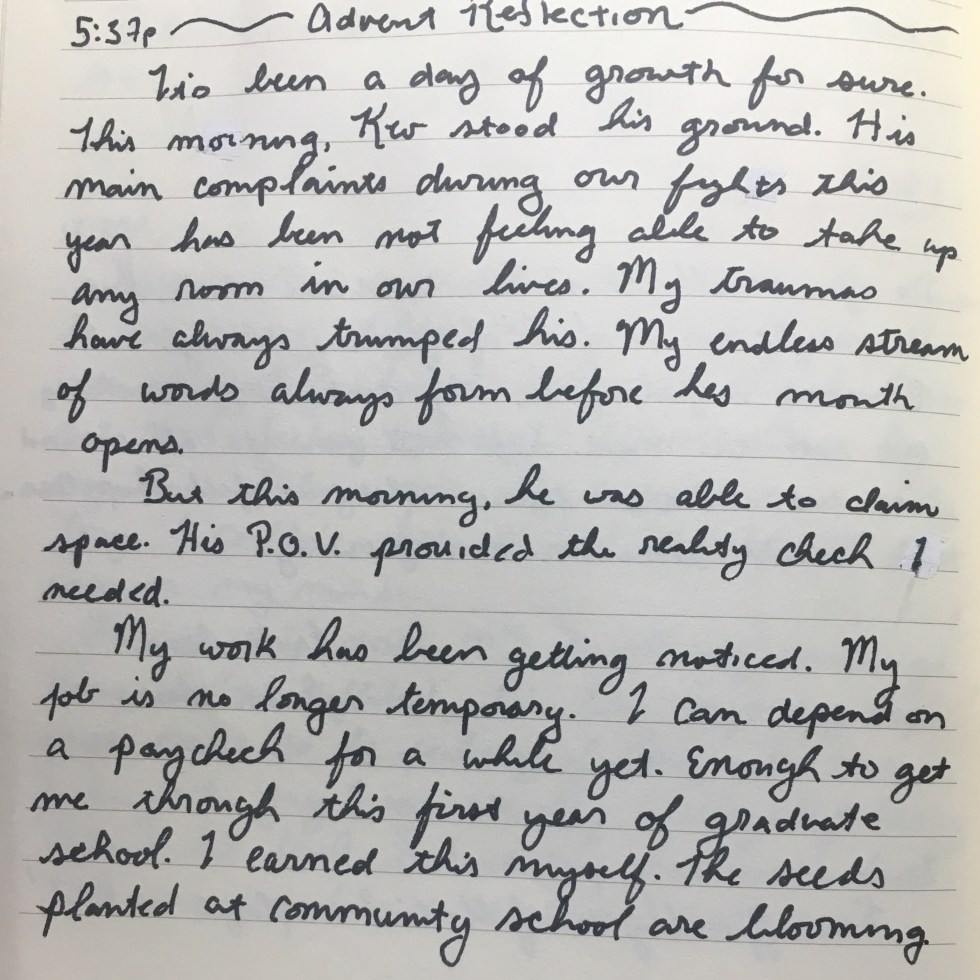 5:37p Advent Reflection
It's been a day of growth for sure.
This morning, Kev stood his ground. His
main complaints during our fights this
year has been not feeling able to take up
any room in our lives. My traumas
have always trumped his. My endless stream
of words always form before his mouth
opens.
But this morning, he was able to claim
space. His P.O.V. provided the reality check I
needed.
My work has been getting noticed. My
job is no longer temporary. I can depend on
a paycheck for a while yet. Enough to get
me through this first year of graduate
school. I earned this myself. The seeds
planted at community school are blooming.